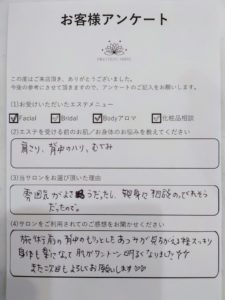 お客様アンケート
この度はご来店頂き、ありがとうございました。
今後の参考にさせて頂きますので、アンケートのご記入をお願いします。
(1)お受けいただいたエステメニュー
Facial Bridal Bodyアロマ 化粧品相談
(2)エステを受ける前のお肌／お身体のお悩みを教えてください
肩こり、背中のハリ、むくみ
(3)当サロンをお選び頂いた理由
雰囲気がよさそうだったし、親身に相談のってくれそう
だったので。
(4)サロンをご利用されてのご感想をお聞かせください
施術前の背中のもりっとしたあつみが見ちがえる程スッキリ
身体も軽くなって肌がワントーン明るくなりました
また次回もよろしくお願いします